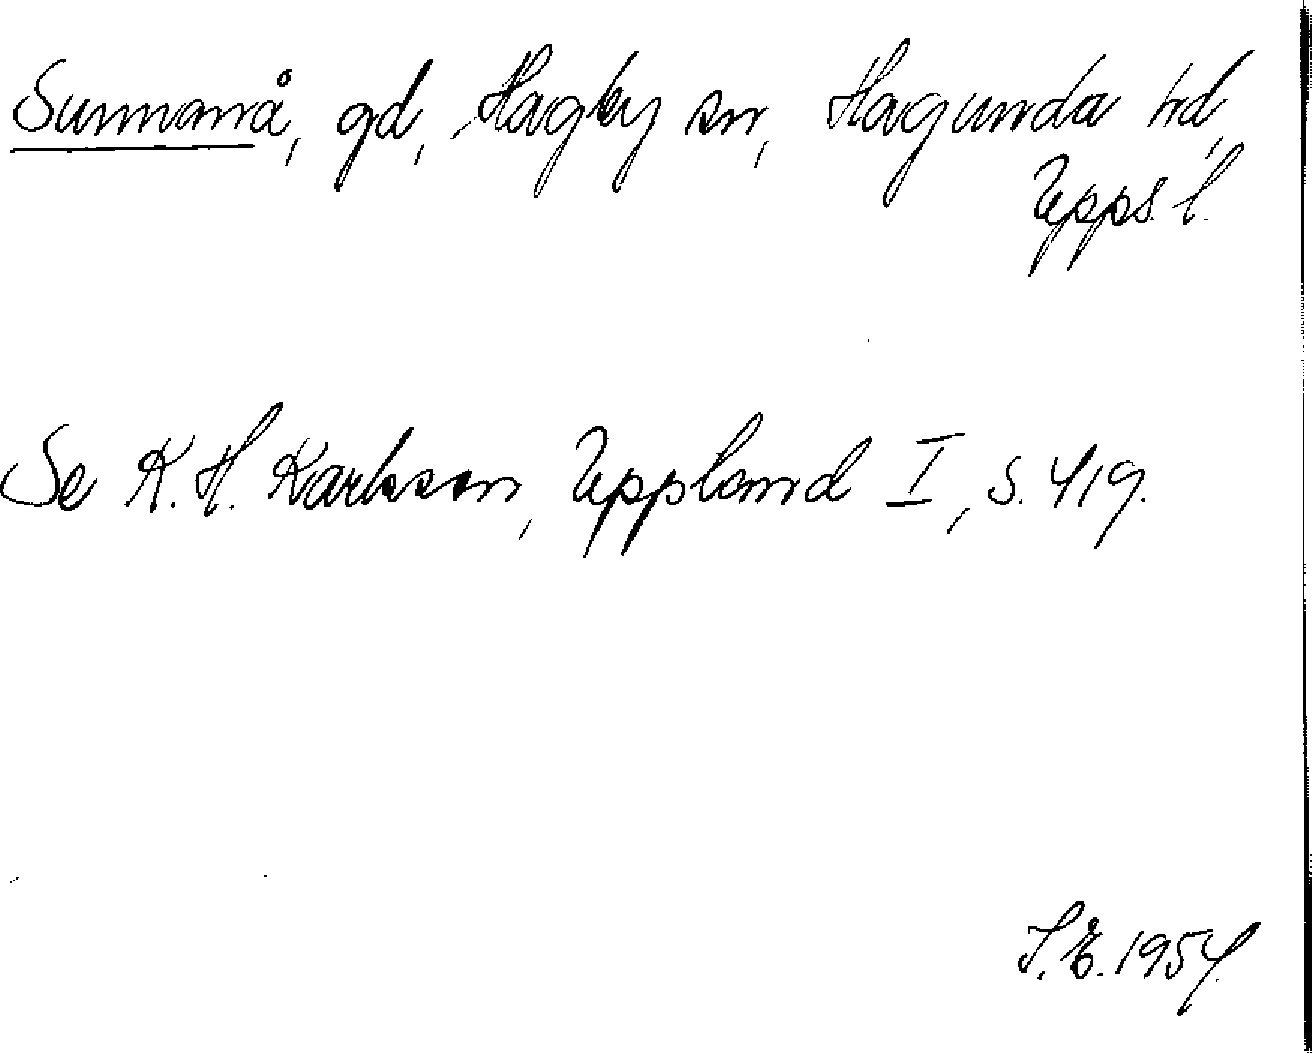 Sunnanå, gd, Hagby sn, Hagunda hd,
Upps. l.
Se K. H. Karlsson, Uppland I, s. 419.
1954.